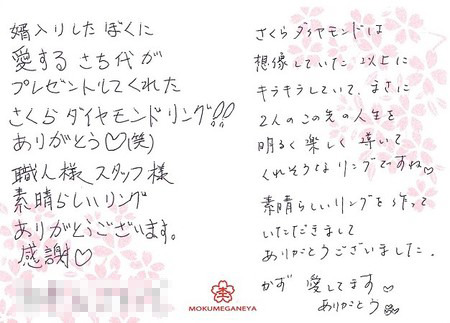 婿入りしたぼくに
愛する さち代が
プレゼントしてくれた
さくらダイヤモンドリング!!
ありがとう♡(笑)
職人様 スタッフ様
素晴らしいリング
ありがとうございます。
感謝♡
さくらダイヤモンドは
想像していた以上に
キラキラしていて、まさに
2人のこの先の人生を
明るく楽しく導いて
くれそうなリングですね♡
素晴らしいリングを作って
いただきまして
ありがとうございました.
かず 愛してます♡
ありがとう
MOKUMEGANEYA